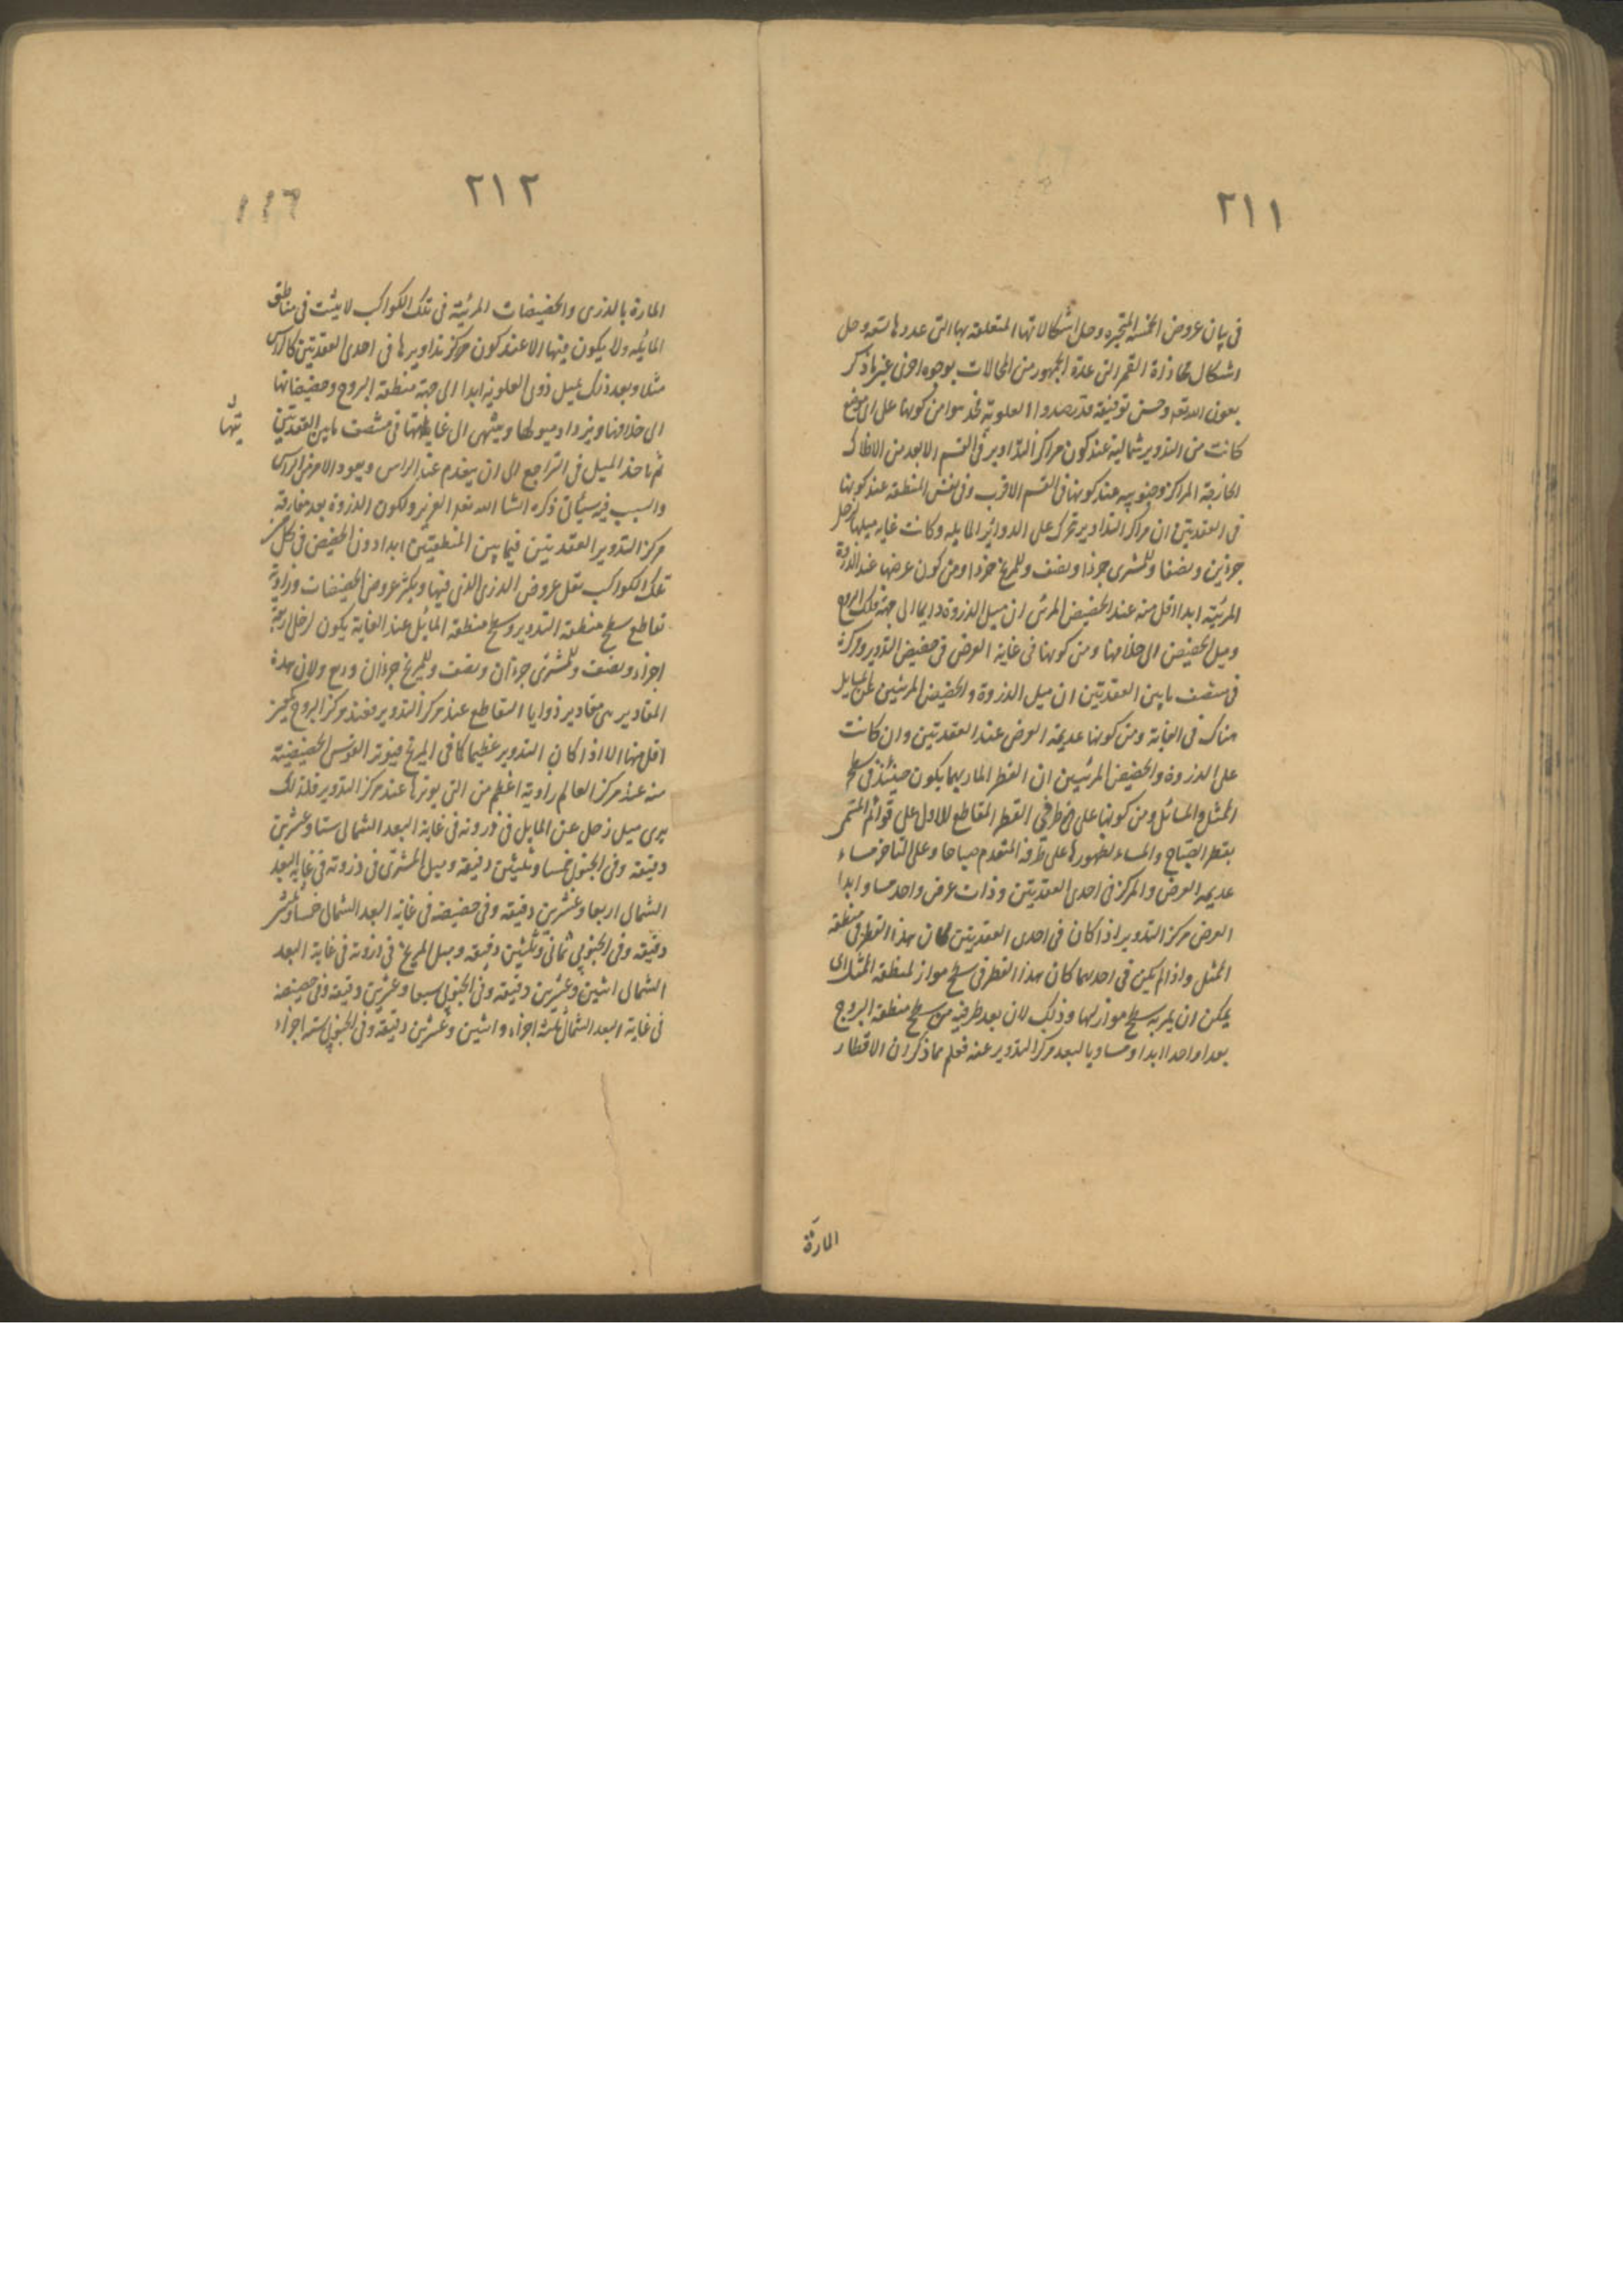 ٢١١
فى بيان عروض الخمسة المتحيرة وحل اشكالاتها المتعلقة بها التى عددها تسعة وحل
اشكال محاذاة القمر التى عده الجمهور من المحالات بوجوه اخرى غير ما ذكر
بعون الله تعه وحسن توفيقه قد رصدوا العلوية فوجدوا من كونها على اى موضع
كانت من التدوير شمالية عند كون مراكز التداوير فى القسم الابعد من الافلاك
الخارجة المراكز وجنوبيه عند كونها فى القسم الاقرب وفى نفس المنطقة عند كونها
فى العقدتين ان مراكز التداوير تحرك على الدوائر المايله وكانت غايه ميلها لزحل
جزئين ونصفا وللمشترى جزءا ونصف وللمريخ جزءا ومن كون عرضها عند الذروة
المرئية ابدا اقل منه عند الحضيض المرئى ان ميل الذروة دايما الى جهة فلك البروج
وميل الحضيض الى خلافها ومن كونها فى غاية العرض فى حضيض التدوير ومركزه
فى منتصف مابين العقدتين ان ميل الذروة والحضيض المرئيين عن المايل
هناك فى الغاية ومن كونها عديمة العرض عند العقدتين وان كانت
على الذروة والحضيض المرئيين ان القطر المار بهما يكون حينئذ فى سطح
الممثل والمائل ومن كونها على طرفى القطر المقاطع للاول على قوائم المسمى
بقطر الصباح والمساء لظهورها على طرفه المتقدم صباحا وعلى المتاخر مساء
عديمه العرض والمركز فى احدى العقدتين وذات عرض واحد مساو ابدا
العرض مركز التدوير اذا كان فى احدى العقدتين كان هذا القطر فى منطقة
الممثل واذا لم يكن فى احديهما كان هذا القطر فى سطح مواز لمنطقة الممثل اى
يمكن ان يمر به سطح مواز لها وذلك لان بعد طرفيه من سطح منطقة البروج
بعدا واحدا ابدا ومساويا لبعد مركز التدوير عنه فعلم مما ذكر ان الاقطار
المارة
٢١٢
المارة بالذرى والحضيضات المرئية فى تلك الكواكب لا يثبت فى مناطق
المايله ولا يكون فيها الا عند كون مركز تداويرها فى احدى العقدتين كالراس
مثلا وبعد ذلك يميل ذرى العلوية ابدا الى جهة منطقة البروج وحضيضاتها
الى خلافها ويزداد ميولها وينتهى الى غاياتها فى منتصف مابين العقدتين
يتها
ثم ياخذ الميل فى التراجع الى ان ينعدم عند الراس ويعود الامر من الراس
والسبب فيه سيأتى ذكره انشا الله تعه العزيز ولكون الذروة بعد مفارقة
مركز التدوير العقدتين فيما بين المنطقتين ابدا دون الحضيض فى كل
تلك الكواكب تقل عروض الذرى التى فيها ويكثر عروض الحضيضات وزاوية
تقاطع سطح منطقة التدوير وسطح منطقة المائل عند الغاية يكون لزحل اربعة
اجزاء ونصف وللمشترى جزءان ونصف وللمريخ جزءان وربع ولان هذه
المقادير هى مقادير زوايا التقاطع عند مركز التدوير فعند مركز البروج
اقل منها الا اذا كان التدوير عظيما كما فى المريخ فيوتر القوس الحضيضية
منه عند مركز العالم زاوية اعظم من التى يوترها عند مركز التدوير فلذلك
يرى ميل زحل عن المايل فى ذروته فى غاية البعد الشمالى ستا وعشرين
دقيقة وفى الجنوبى خمسا وثلثين دقيقة وميل المشترى فى ذروته فى غاية البعد
الشمالى اربعا وعشرين دقيقة وفى حضيضه فى غاية البعد الشمالى خمسا وثلثين
دقيقه وفى الجنوبى ثمانى وثلثين دقيقه وميل المريخ فى ذروته فى غاية البعد
الشمالى اثنين وعشرين دقيقه وفى الجنوبى سبعا وعشرين دقيقه وفى حضيضه
فى غاية البعد الشمالى ثلثه اجزاء واثنين وعشرين دقيقه وفى الجنوبى ستة اجزاء